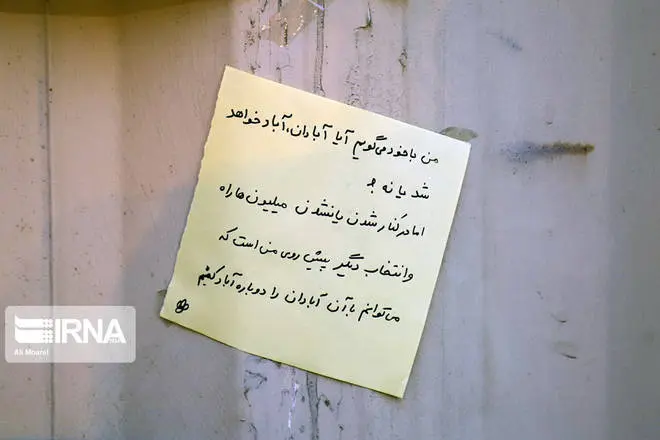 من با خود می‌گویم آیا آبادان، آباد خواهد
شد یا نه ؟
اما در کنار شدن یا نشدن میلیون ها راه
و انتخاب دیگر پیش روی من است که
می‌توانم با آن آبادان را دوباره آباد کنیم
IRNA
Ali Moaref